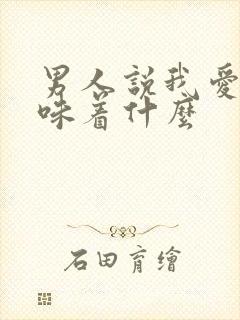 男人説我愛
味着什麼
石田育繪